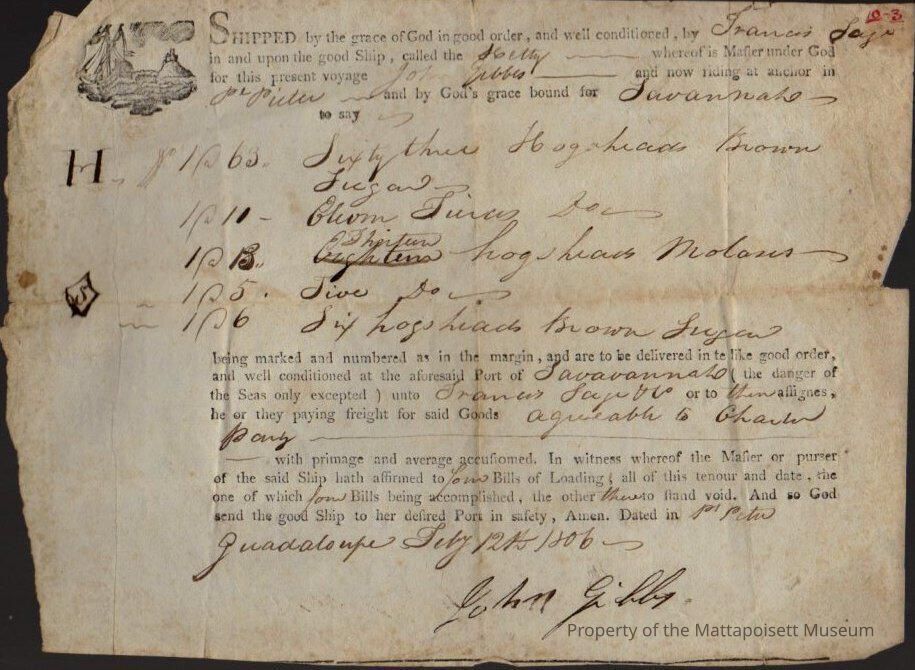 10-3
SHIPPED by the grace of God in good order, and well conditioned, by Francis Sage
in and upon the good Ship, called the Hetty whereof is Master under God
for this present voyage John Gibbs and now riding at anchor in
Pt Pieter and by God's grace bound for Savannah
to say
H No 1@63. Sixty three Hogsheads Brown
Sugar
1@11 - Eleven Tierces Do
Thirteen
1@13.. Eighteen hogsheads Molases
S 1@5. Five Do
1@6 Six hogsheads Brown Sugar
being marked and numbered as in the margin, and are to be delivered in te like good order,
and well conditioned at the aforesaid Port of Savavannah ( the danger of
the Seas only excepted ) unto Francis Sage & Co or to their assignes,
he or they paying freight for said Goods agreeable to Charter
Party
with primage and average accustomed. In witness whereof the Master or purser
of the said Ship hath affirmed to four Bills of Loading; all of this tenour and date, the
one of which four Bills being accomplished, the other three to stand void. And so God
send the good Ship to her desired Port in safety, Amen. Dated in Pt Peter
Guadaloupe Feby 12th 1806
John Gibbs.
Property of the Mattapoisett Museum